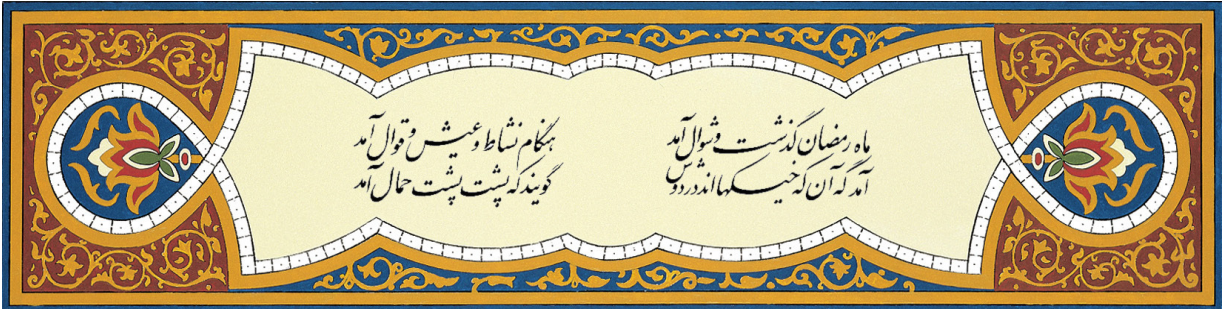 ماه رمضان گذشت و شوال آمد هنگام نشاط و عیش و قوال آمد
آمد گه آن که خیکها اندر دوش گویند که پشت پشت حمال آمد